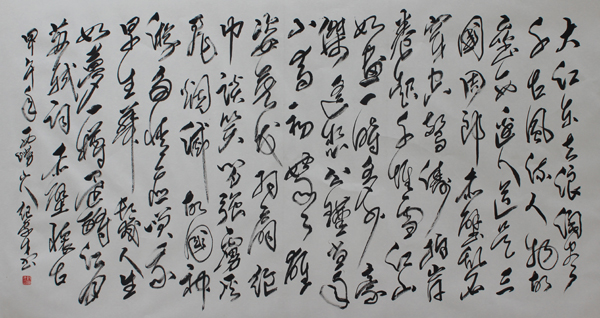 大江东去浪淘尽
千古风流人物故
垒西边人道是三
國周郎赤壁乱石
穿空惊涛拍岸
卷起千堆雪江山
如画一时多少豪
傑遥想公瑾当年
小喬初嫁了雄
姿英发羽扇纶
巾谈笑间强虏灰
飛烟滅故國神
游多情应笑我
早生華髮人生
如夢一樽還酹江月
蘇軾詞赤壁懷古
甲午年山人书